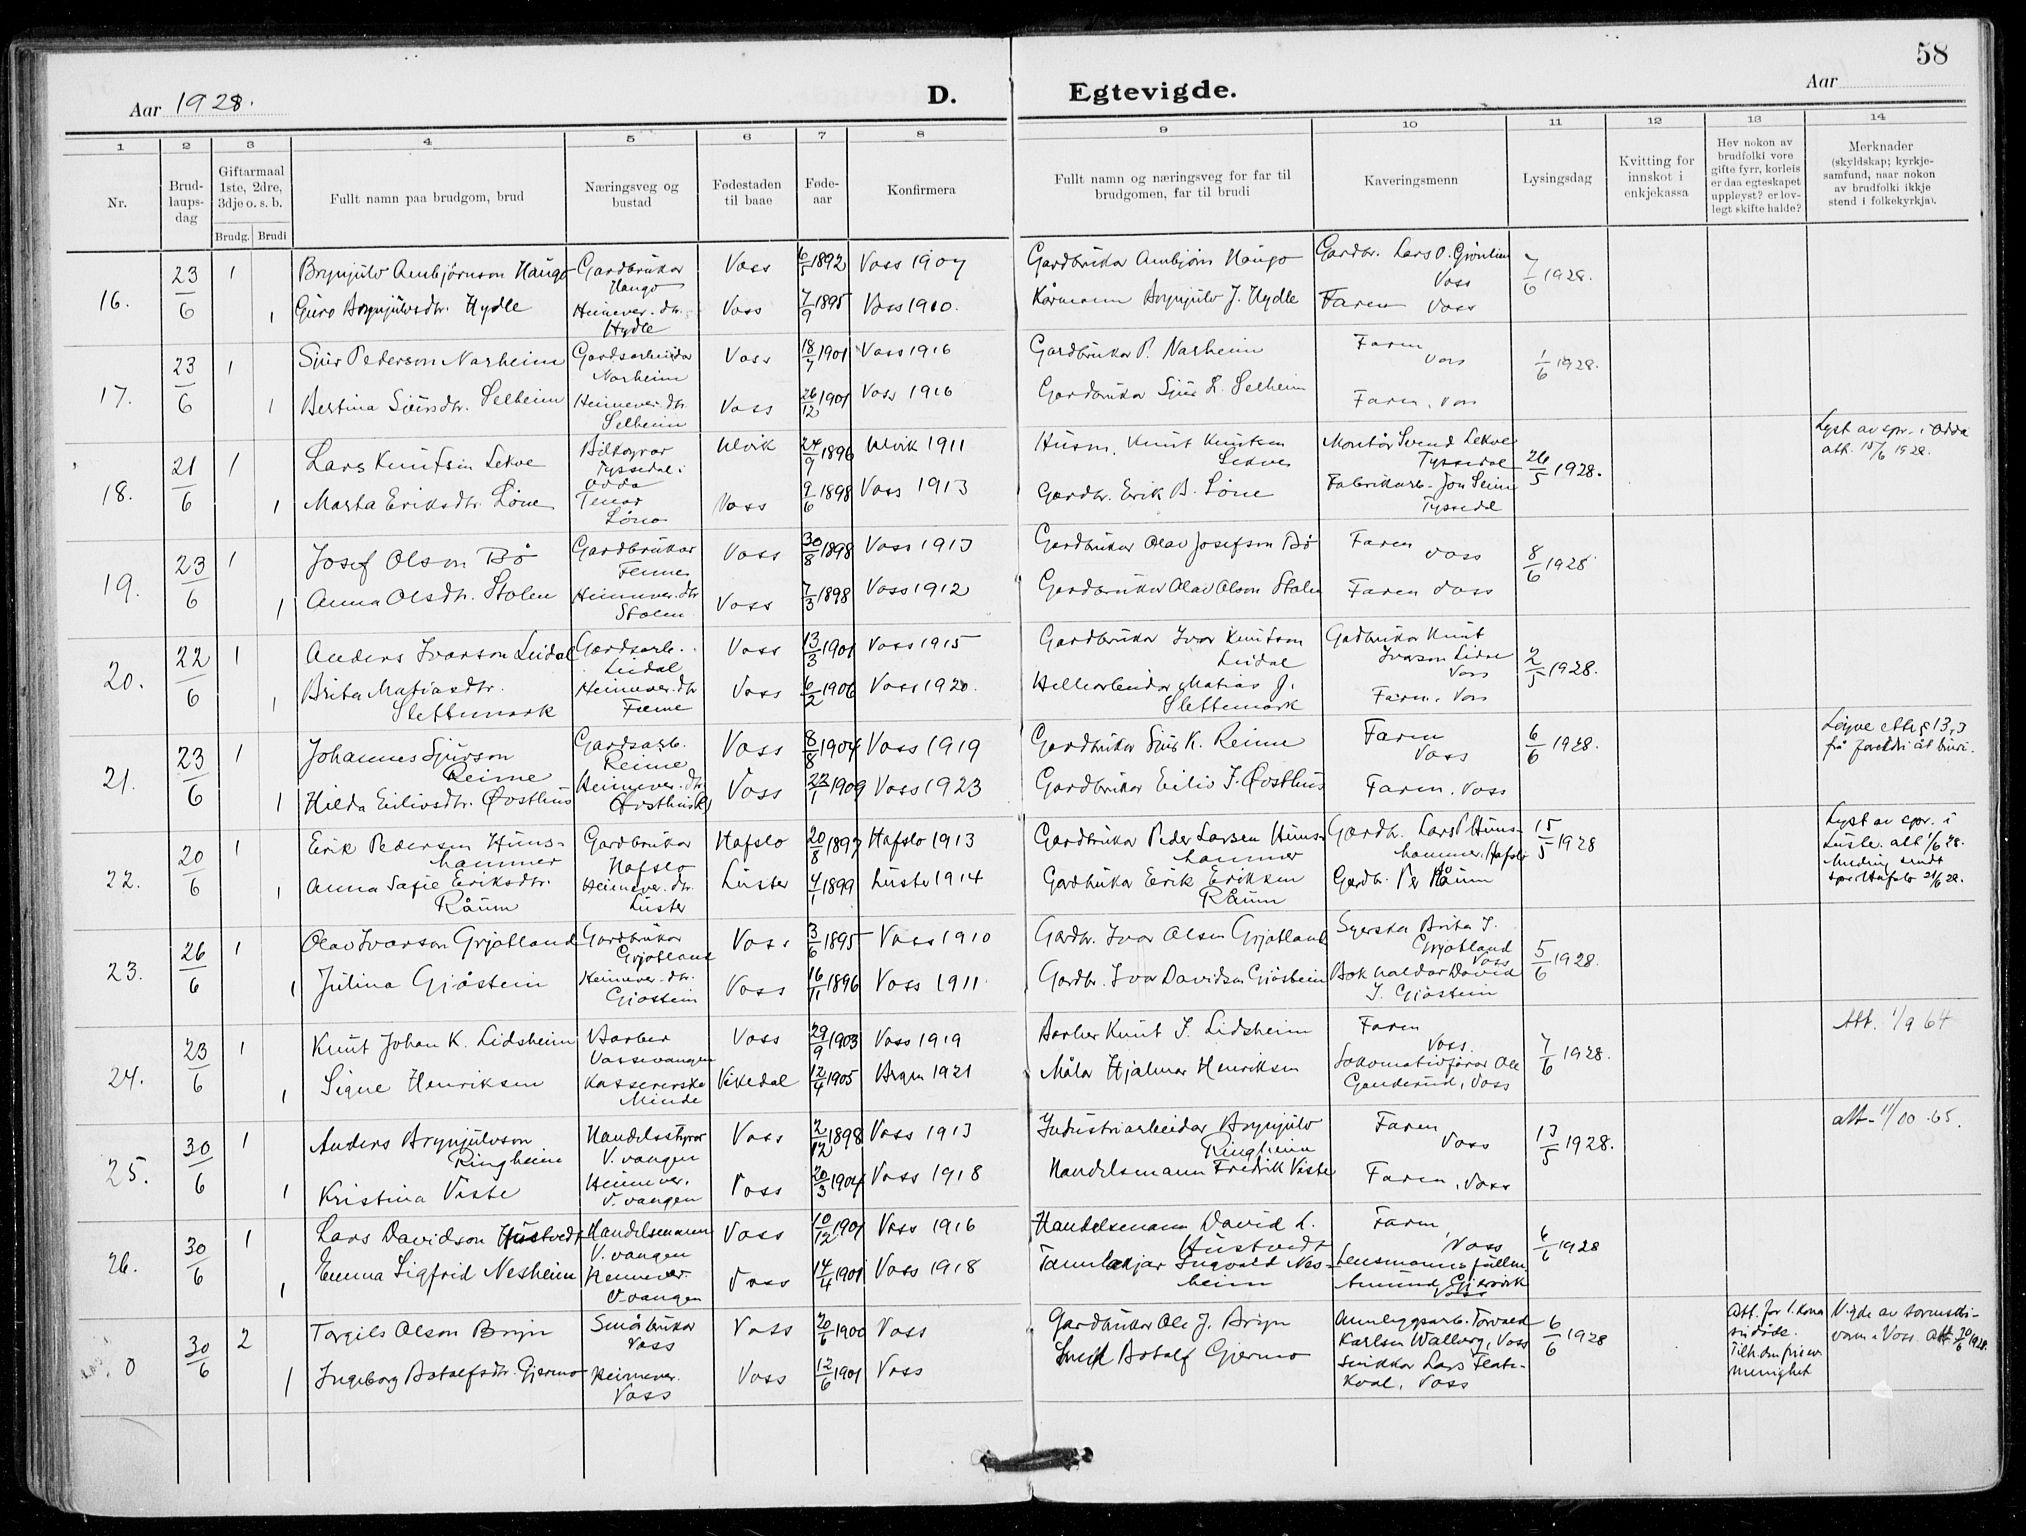 58
Aar 1928.
D. Egtevigde.
Aar
1 2 3 4 5 6 7 8 9 10 11 12 13 14
Nr.
Brud-
laups-
dag
Giftarmaal
1ste, 2dre,
3dje o. s. b.
Brudg. Brudi
Fullt namn paa brudgom, brud
Næringsveg og
bustad
Fødestaden
til baae
Føde-
aar
Konfirmera
Fullt namn og næringsveg for far til
brudgomen, far til brudi
Kaveringsmenn
Lysingsdag
Kvitting for
innskot i
enkjekassa
Hev nokon av
brudfolki vore
gifte fyrr, korleis
er daa egteskapet
uppleyst? er lov-
legt skifte halde?
Merknader
(skyldskap; kyrkje-
samfund, naar nokon
av brudfolki ikkje
stend i folkekyrkja).
16. 23/6 1 Brynjulv Ambjørnson Haugo Gardbrukar Haugo Voss 6/5 1892 Voss 1907 Gardbrukar Ambjørn Haugo Gardbr. Lars O. Grønlien Voss 7/6 1928.
1 Guro Brynjulvsdtr. Hydle Heimever. dtr. Hydle Voss 7/9 1895 Voss 1910. Kårmann Brynjulv J. Hydle Faren Voss
17. 23/6 1 Sjur Pederson Narheim Gardsarbeidar Narheim Voss 18/7 1901 Voss 1916 Gardbrukar P. Narheim Faren Voss 1/6 1928.
1 Bertina Sjursdtr. Selheim Heimever. dtr. Selheim Voss 26/12 1901 Voss 1916 Gardbrukar Sjur L. Selheim Faren, Voss
18. 21/6 1 Lars Knutsen Lekve Bilkøyrar Tyssedal i Odda Ulvik 24/9 1896 Ulvik 1911 Husm. Knut Knutsen Lekve Montør Svend Lekve Tyssedal 26/5 1928. Lyst av spr. i Odda att. 15/6 1928.
1 Marta Eriksdtr. Løne Tenar Løno Voss 9/6 1898 Voss 1913 Gardbr. Erik B. Løne Fabrikarb. Jon Seim Tyssedal
19. 23/6 1 Josef Olson Bø Gardbrukar Fenne Voss 30/8 1898 Voss 1913 Gardbrukar Olav Josefson Bø Faren Voss 8/6 1928
1 Anna Olsdtr. Stolen Heimever. dtr. Stolen Voss 7/3 1898 Voss 1912 Gardbrukar Olav Olson Stolen Faren Voss
20. 22/6 1 Anders Ivarson Leidal Gardsarb. Leidal Voss 13/3 1901 Voss 1915 Gardbrukar Ivar Knutson Leidal Gadbrukar Knut Ivarson Lidal Voss 2/5 1928.
1 Brita Matiasdtr. Slettemark Heimever. dtr. Voss 6/2 1906 Voss 1920. Matias J. Slettemark Faren, Voss
21. 23/6 1 Johannes Sjurson Reime Gardsarb. Reime Voss 8/8 1904 Voss 1919 Gardbrukar Sjur K. Reime Faren Voss 6/6 1928. Løyve etter § 13,3 frå foreldri åt brudi.
1 Hilda Eilivsdtr. Øvsthus Heimever. dtr. Voss 22/1 1909 Voss 1923 Gardbrukar Eiliv I. Øvsthus Faren, Voss
22. 20/6 1 Erik Pederson Hunshammer Gardbrukar Hafslo Hafslo 20/8 1897 Hafslo 1913 Gardbrukar Peder Larsen Hunshammer Gardbr. Lars P. Hunshammer, Hafslo 15/5 1928 Lyst av spr. i Luster. att 1/6 28. Melding sendt spr. Hafslo 21/6 28.
1 Anna Safie Eriksdtr. Råum Heimever. dtr. Luster Luster 4/1 1899 Luster 1914 Gardbrukar Erik Eriksen Råum Gardbr. Per Råum
23. 26/6 1 Olav Ivarson Grjotland Gardbrukar Grjotland Voss 3/6 1895 Voss 1910 Gardbr. Ivar Olsen Grjotland Syerska Brita I. Grjotland Voss 5/6 1928.
1 Julina Gjøstein Heimever. dtr. Gjøstein Voss 16/11 1896 Voss 1911. Gardbr. Ivar Davidsen Gjøstein Bokhaldar David I. Gjøstein
24. 23/6 1 Knut Johan K. Lidsheim Barber Vossevangen Voss 29/9 1903 Voss 1919 Barber Knut I. Lidsheim Faren Voss. 7/6 1928. Att. 1/9 64
1 Signe Henriksen Kassererske Minde Vikedal 12/4 1905 Bergen 1921 Målar Hjalmar Henriksen Lokomotivførar Ole Ganderud, Voss
25. 30/6 1 Anders Brynjulvson Ringheim Handelsstyrar V. vangen Voss 2/12 1898 Voss 1913 Industriarbeidar Brynjulv Ringheim Faren Voss 13/5 1928. att. 11/10 -65.
1 Kristina Viste Heimever. V. vangen Voss 20/3 1904 Voss 1918 Handelsmann Fredrik Viste Faren, Voss
26. 30/6 1 Lars Davidson Hustvedt Handelsmann V. vangen Voss 10/12 1901 Voss 1916 Handelsmann David L. Hustvedt Faren, Voss 6/6 1928
1 Emma Sigfrid Nesheim Heimever. V. vangen Voss 14/4 1901 Voss 1918 Ingvald Nesheim Lensmannsfullm. Amund Gjersvik Voss
0 30/6 2 Torgils Olson Bryn Småbrukar Voss Voss 20/6 1900 Voss Gardbrukar Ole J. Bryn Anleggsarb. Torvald Karlsen Walberg, Voss 6/6 1928 Att. for 1. kona si død. Tilh. den frie ev. menighet Vigde av sorenskrivaren i Voss. Att 30/6 1928.
1 Ingeborg Botolfsdtr. Gjermo Heimever. Voss Voss 12/6 1901 Voss Botolf Gjermo Snikkar Lars Flatekval, Voss